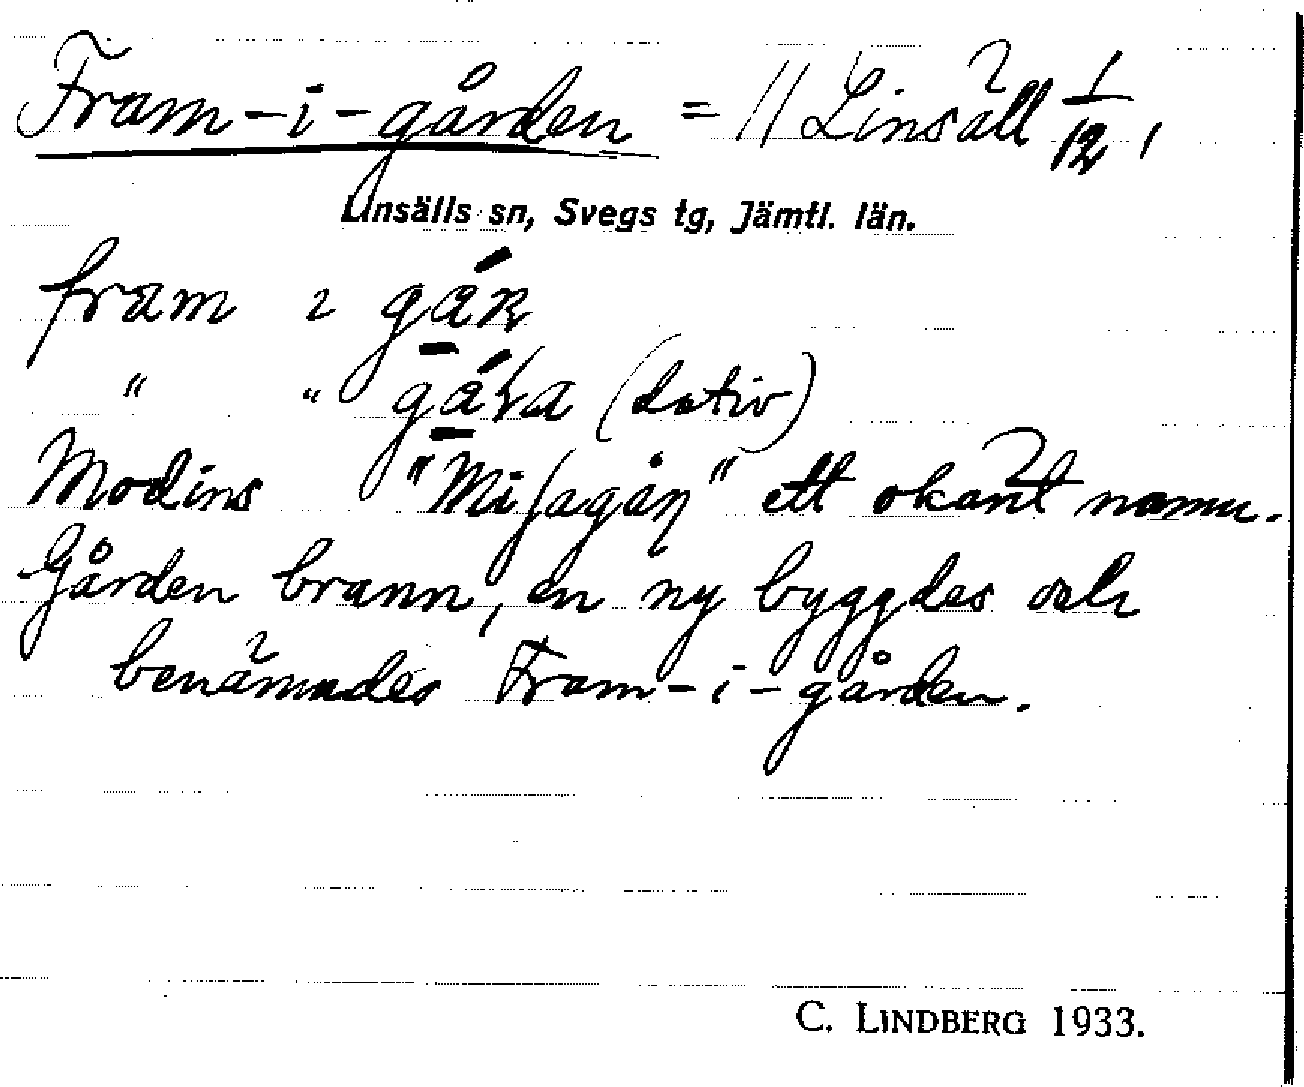 Fram-i-gården = // Linsäll 1/12,
Linsälls sn, Svegs tg, Jämtl. län.
fram
" " (dativ)
Modins ett okänt namn.
Gården brann, en ny byggdes och
benämndes Fram-i-gården.
C. LINDBERG 1933.